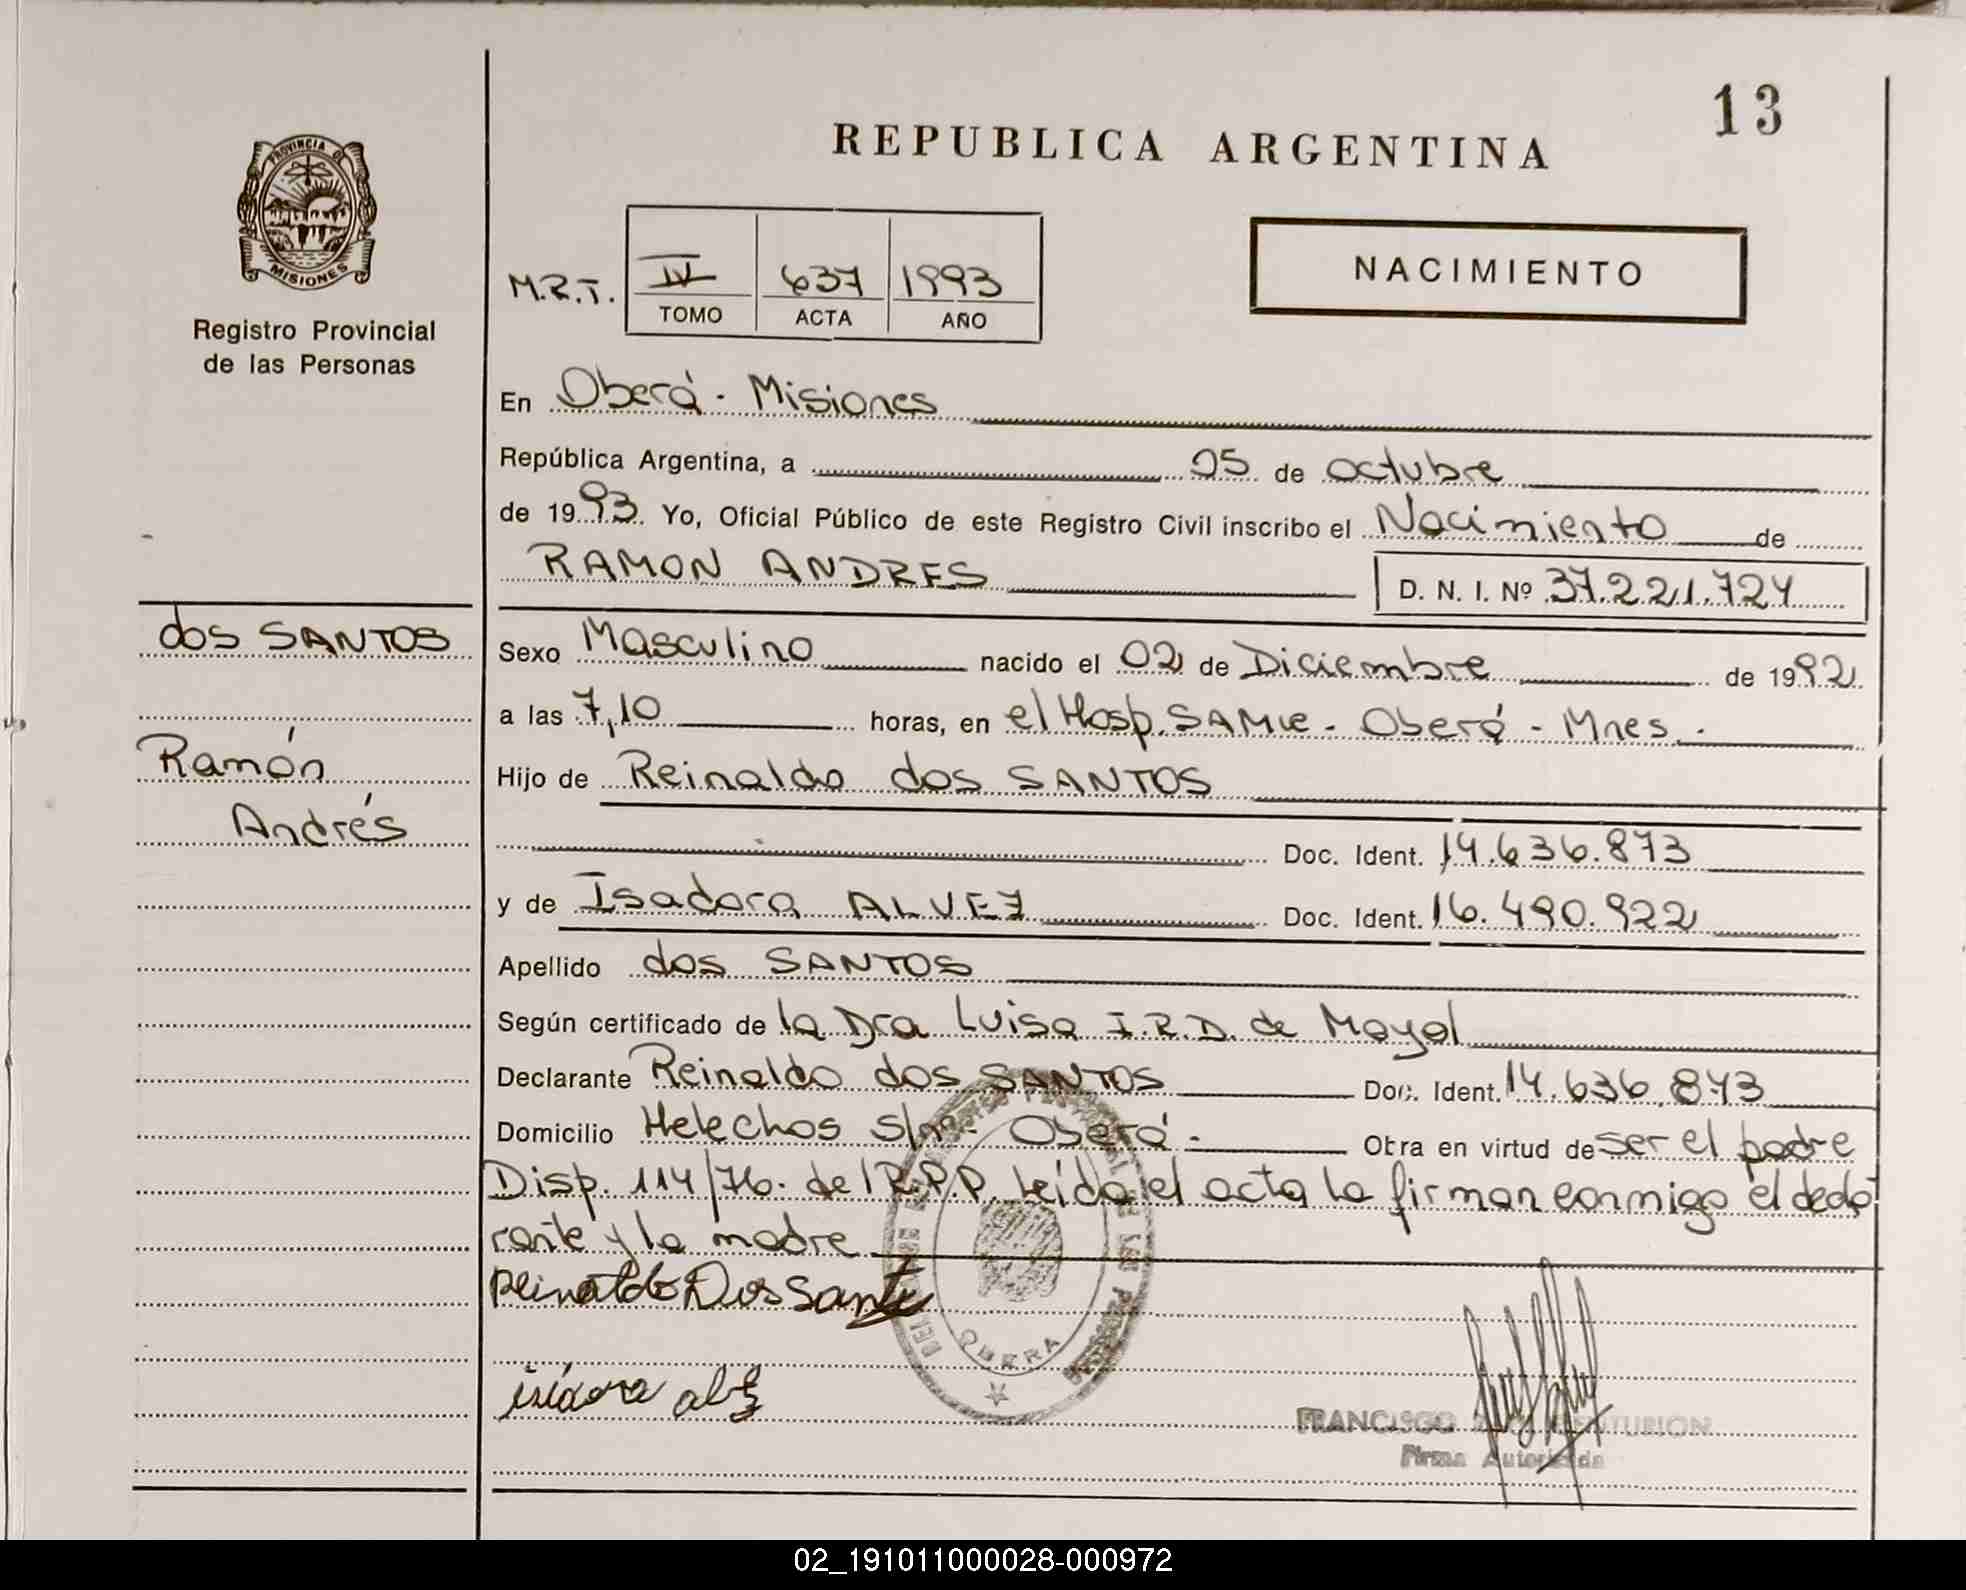 13
REPUBLICA ARGENTINA
PROVINCIA DE
MISIONES
Registro Provincial
de las Personas
NACIMIENTO
M.R.T. IV 637 1993
TOMO ACTA AÑO
En Oberá - Misiones
República Argentina, a 05 de octubre
de 1993. Yo, Oficial Público de este Registro Civil inscribo el Nacimiento de
RAMON ANDRES D. N. I. Nº 37.221.724
dos SANTOS
Ramón
Andrés
Sexo Masculino nacido el 02 de Diciembre de 1992
a las 7,10 horas, en el Hosp. SAMIC - Oberá - Mnes.
Hijo de Reinaldo dos SANTOS
Doc. Ident. 14.636.873
y de Isadora ALVEZ Doc. Ident. 16.490.922
Apellido dos SANTOS
Según certificado de la Dra Luisa I.R.D. de Mayol
Declarante Reinaldo dos SANTOS Doc. Ident. 14.636.873
Domicilio Helechos s/nº - Oberá - Obra en virtud de ser el padre
Disp. 114/76. del R.P.P. Leída el acta la firman conmigo el decla
rante y la madre
Reinaldo Dos Santo
OBERA
FRANCISCO CENTURION
Firma Autorizada
02_191011000028-000972